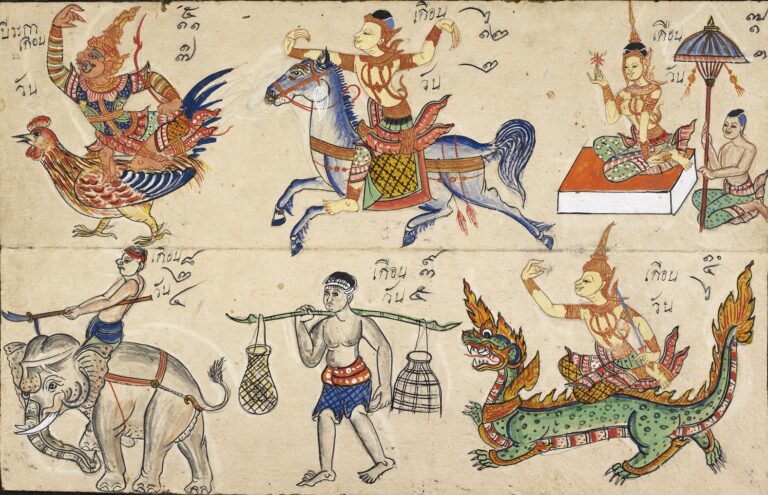 ปีระกา
เดือน ๕
วัน ๗
เดือน ๖
๑๒
วัน ๒
เดือน ๗
วัน ๑
เดือน ๘
๒
วัน ๔
เดือน
วัน ๕
เดือน ๑๐
วัน ๖